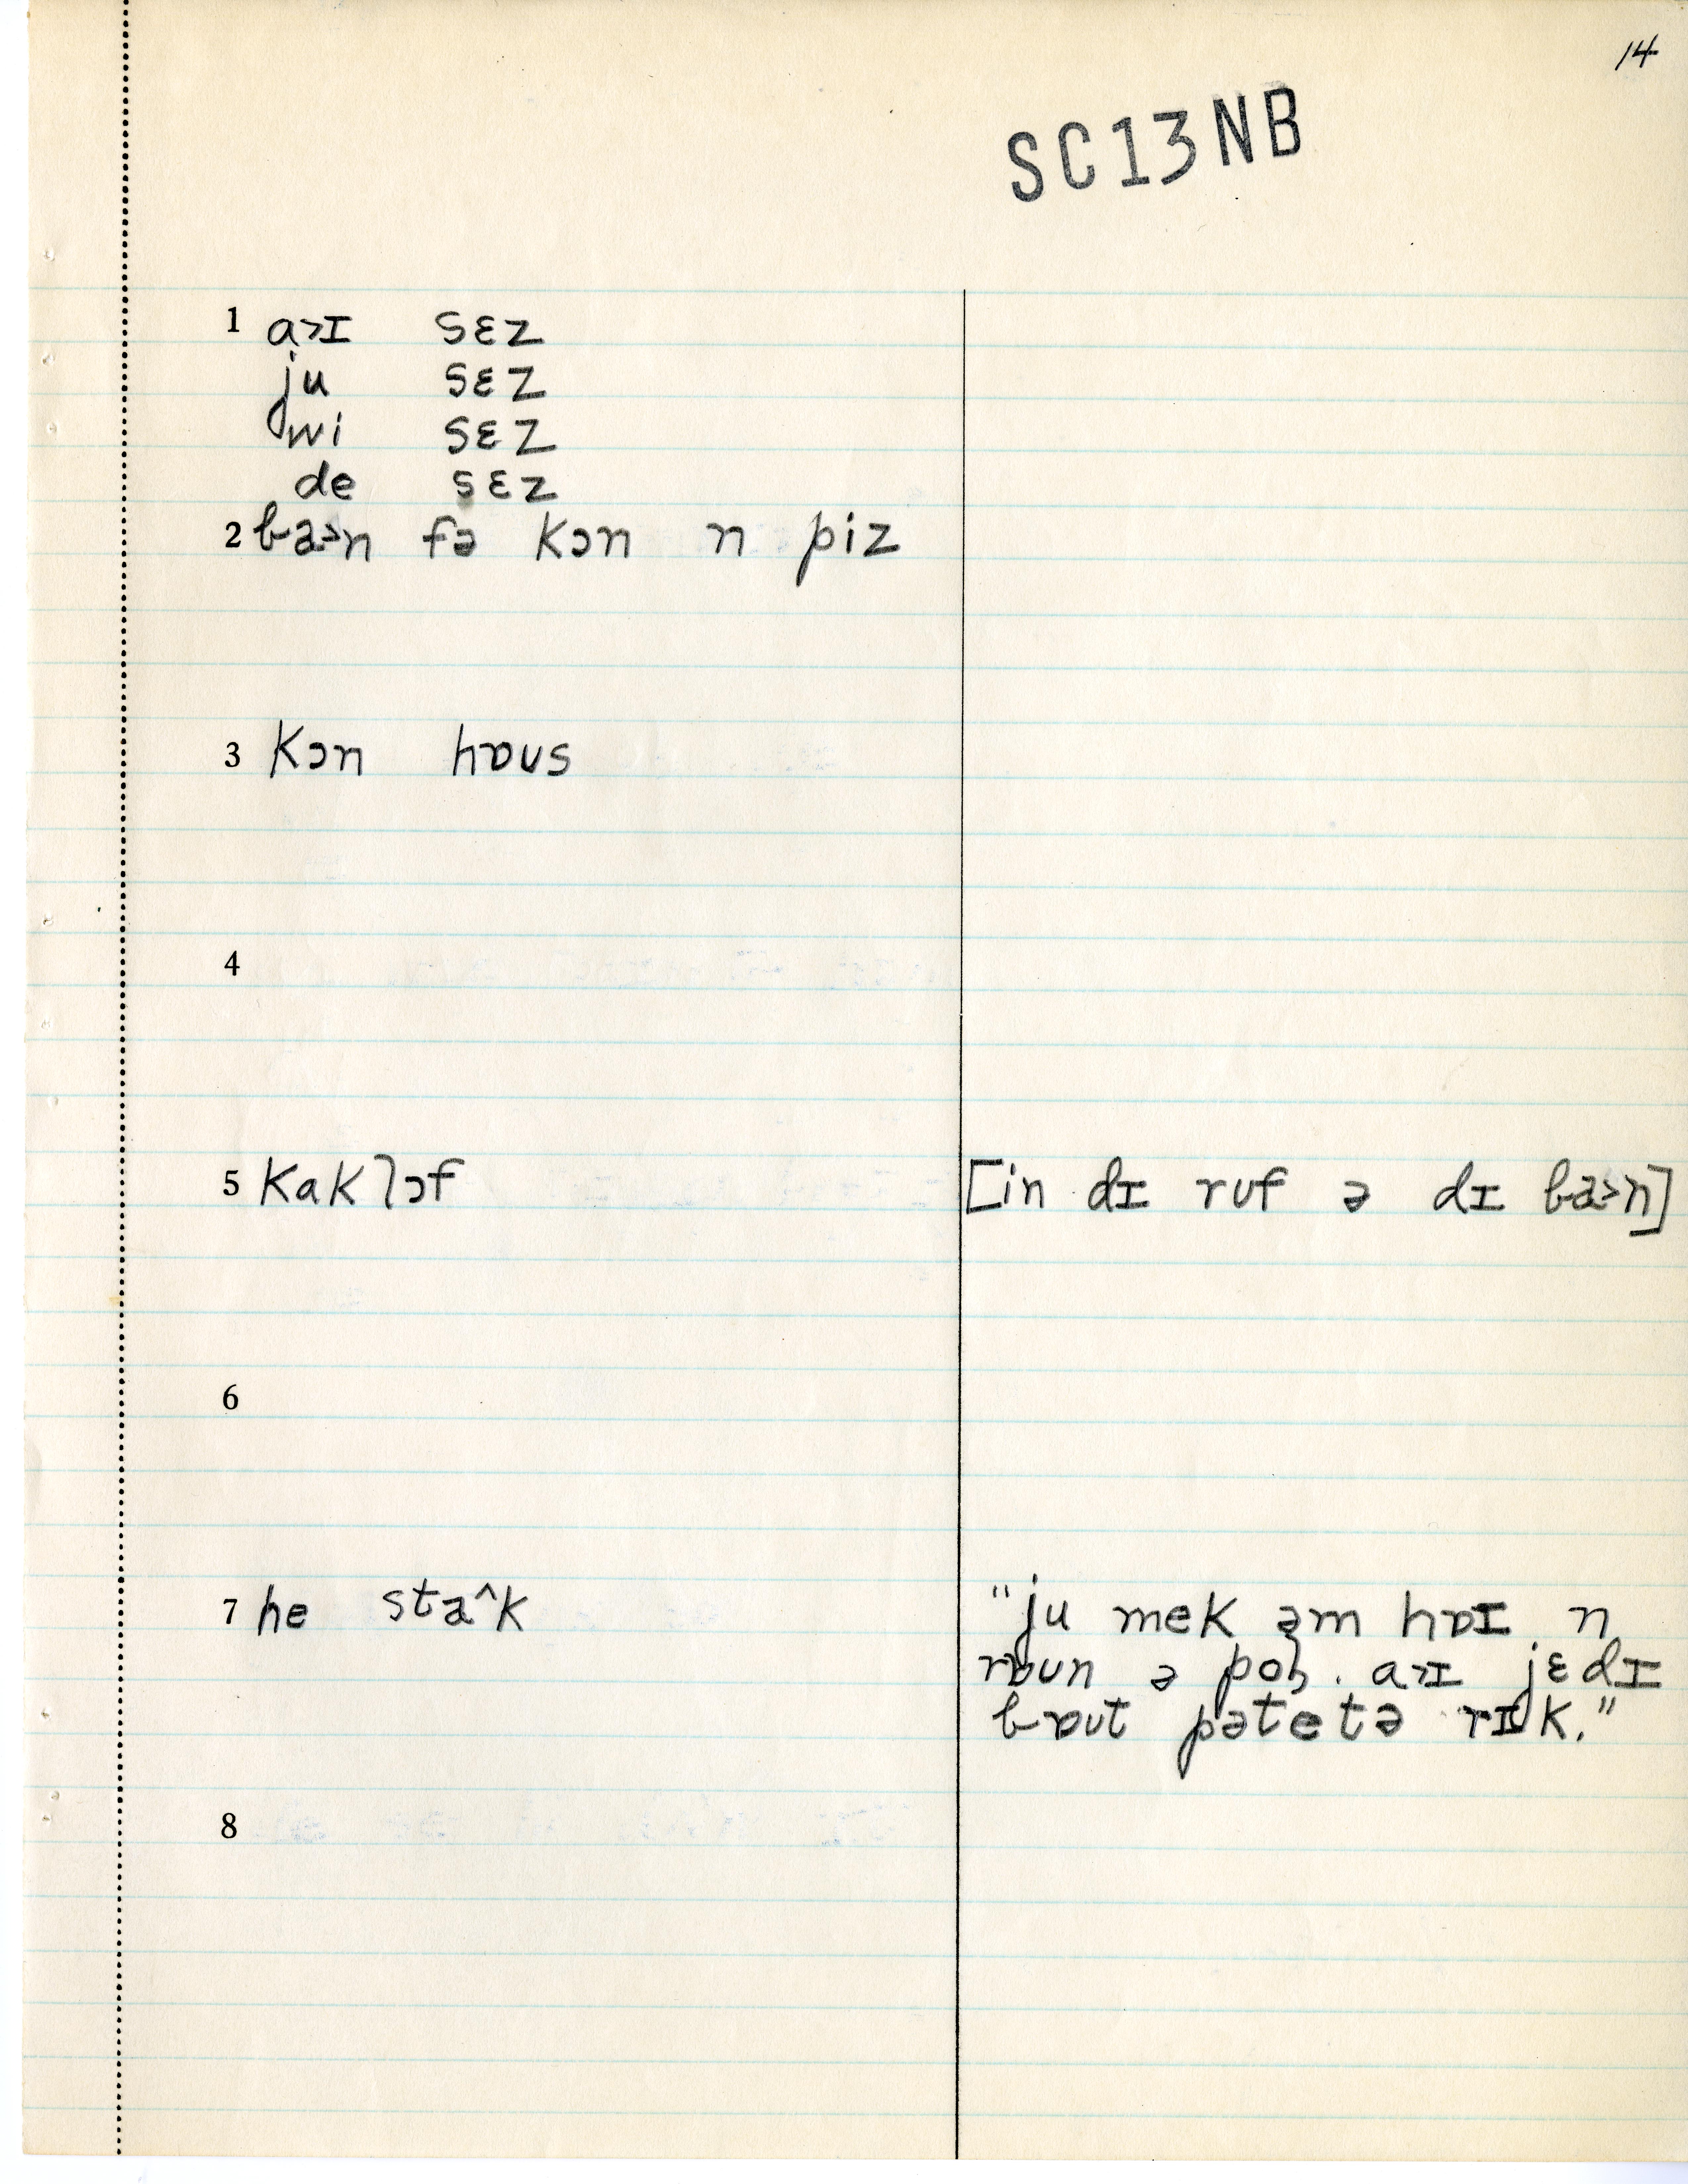 14
SC13NB
1 a>ɪ sɛz
ju sɛz
wi sɛz
de sɛz
2 ba>n fə kɔn n piz
3 kɔn hɒʊs
4
5 kaklɔf [in dɪ rʊf ə dɪ ba>n]
6
7 he sta^k "ju mek əm hɒɪ n
rɒʊn ə a>ɪ jɛdɪ
bɒʊt pətetə rɪk."
8